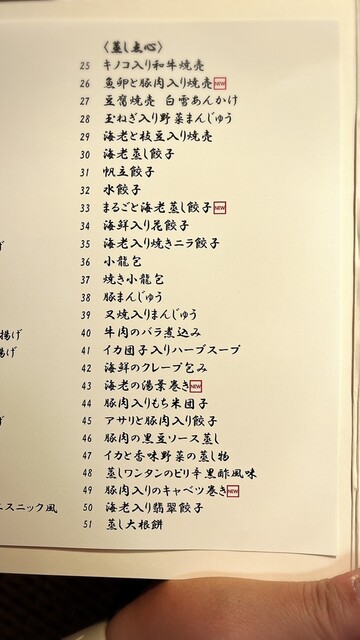 〈蒸し点心〉
25 キノコ入り和牛焼売
26 魚卵と豚肉入り焼売 NEW
27 豆腐焼売 白雪あんかけ
28 玉ねぎ入り野菜まんじゅう
29 海老と枝豆入り焼売
30 海老蒸し餃子
31 帆立餃子
32 水餃子
33 まるごと海老蒸し餃子 NEW
34 海鮮入り花餃子
げ
35 海老入り焼きニラ餃子
36 小龍包
37 焼き小龍包
38 豚まんじゅう
39 叉焼入りまんじゅう
揚げ
40 牛肉のバラ煮込み
揚げ
41 イカ団子入りハーブスープ
42 海鮮のクレープ包み
43 海老の湯葉巻き NEW
44 豚肉入りもち米団子
げ
45 アサリと豚肉入り餃子
46 豚肉の黒豆ソース蒸し
47 イカと香味野菜の蒸し物
48 蒸しワンタンのピリ辛黒酢風味
49 豚肉入りのキャベツ巻き NEW
エスニック風
50 海老入り翡翠餃子
51 蒸し大根餅